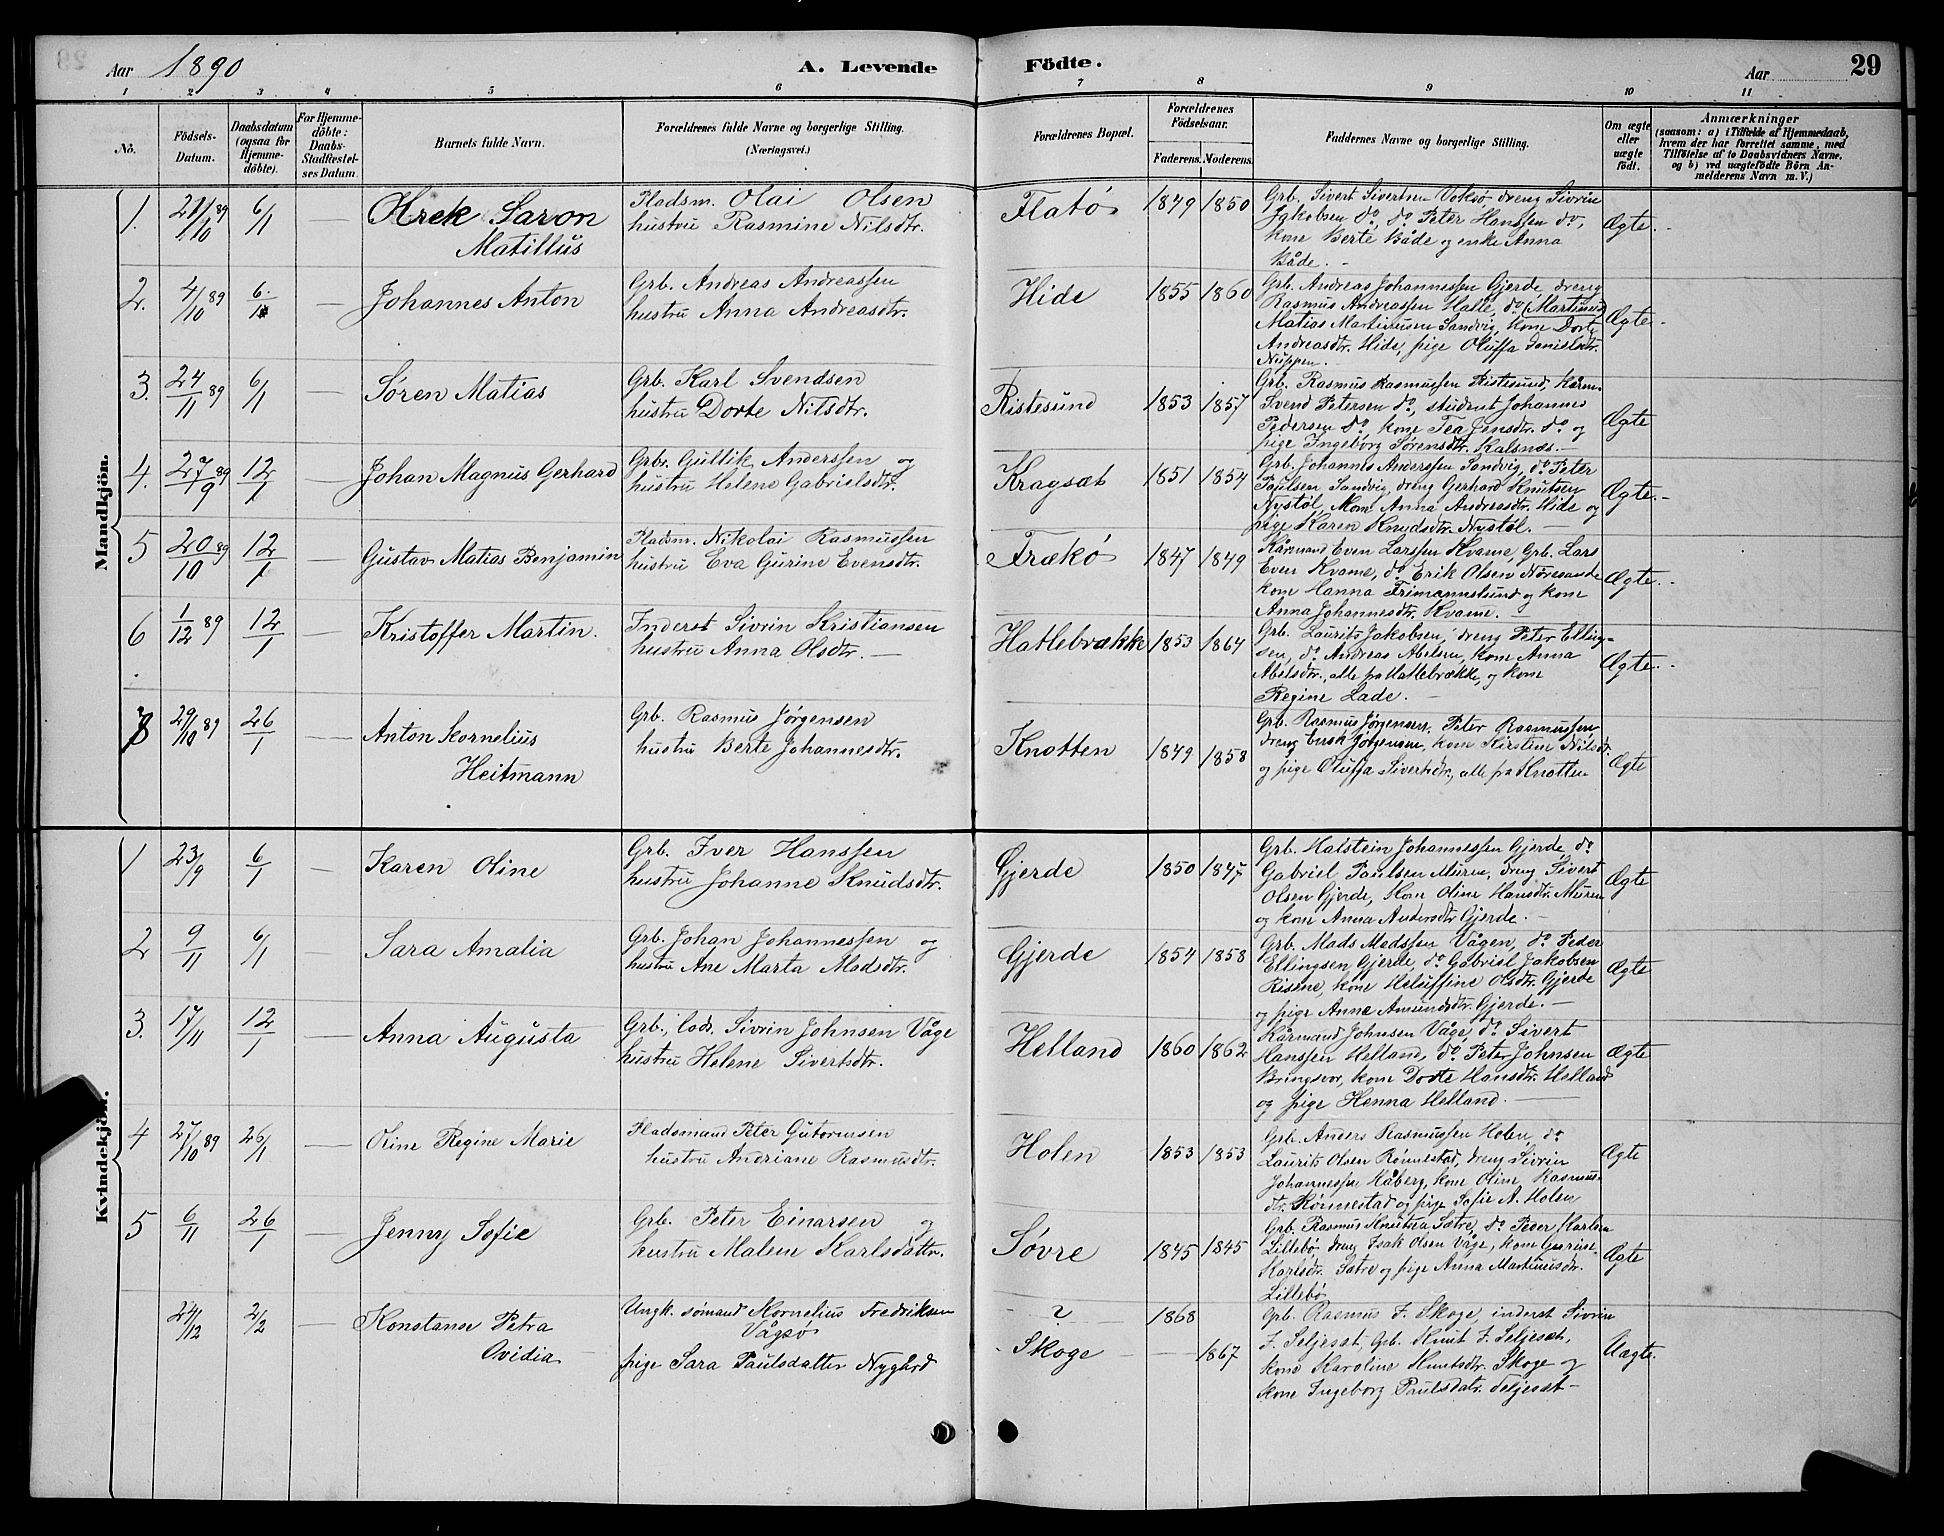 Aar 1890 A. Levende Födte. Aar 29
1 2 3 4 5 6 7 8 9 10 11
No.
Födsels-Datum.
Daabsdatum (ogsaa for Hjemmedöbte).
For Hjemmedöbte: Daabs-Stadfæstelses Datum.
Barnets fulde Navn.
Forældrenes fulde Navne og borgerlige Stilling.
(Næringsvei.)
Forældrenes Bopæl.
Forældrenes Födselsaar.
Faderens. Moderens.
Faddernes Navne og borgerlige Stilling.
Om ægte eller uægte födt.
Anmærkninger
(saasom: a) i Tilfælde af Hjemmedaab,
hvem der har forrettet samme, med
Tilföielse af to Daabsvidners Navne.
og b) ved uægtefödte Börn Anmelderens Navn m. V.)
Mandkjön.
1. 21/10 89 6/1 — Saron Matillus
Pladsm. Olai Olsen
hustru Rasmine Nilsdtr.
Flatø 1849 1850
Grb. Sivert Sivertsen Voksø dreng Sivrin
Jakobsen do, do Peter Hanssen do,
kone Berte Både og enke Anna
Både. –
Ægte.
2. 4/10 89 6/1 — Johannes Anton
Grb. Andreas Andreassen
hustru Anna Andreasdtr.
Hide 1855 1860
Grb. Andreas Johannessen Gjerde, dreng
Rasmus Andreassen Halle, do (Martinus)
Matias Martinussen Sandvig, kone Dorte
Andreasdtr. Hide, pige Oluffa Danielsdtr.
Nuppen.
Ægte.
3. 24/11 89 6/1 — Søren Matias
Grb. Karl Svendsen
hustru Dorte Nilsdtr.
Ristesund 1853 1857
Grb. Rasmus Rasmussen Ristesund, Kårm.
Svend Petersen do, student Johannes
Pedersen do, kone Tea Jensdtr. do og
pige Ingeborg Sørensdtr. Kalsnæs.
Ægte
4. 27/9 89 12/1 — Johan Magnus Gerhard
Grbr. Gullik Anderssen og
hustru Helene Gabrielsdtr.
Kragsæt 1851 1854
Grb. Johannes Anderssen Sandvig, do Peter
Paulsen Sandvig, dreng Gerhard Knutsen
Nystøl, Kone Anna Andreasdtr. Hide og
pige Karen Knudsdtr. Nystøl. —
Ægte.
5 20/10 89 12/1 — Gustav Matias Benjamin
Pladsm. Nikolai Rasmussen
hustru Eva Gurine Evensdtr.
Frækø 1847 1849
Kårmand Even Larssen Kvame, Grb. Lars
Even Kvame, do Erik Olsen Nøresande
kone Hanna Frimannslund og kone
Anna Johannesdtr. Kvame.
Ægte.
6 1/12 89 12/1 — Kristoffer Martin.
Inderst Sivrin Kristiansen
hustru Anna Olsdtr. —
Hatlebrække 1853 1864
Grb. Laurits Jakobsen, dreng Peter Elling-
sen, do Andreas Abelsen, kone Anna
Abelsdtr., alle på Hatlebrække, og kone
Regine Lade. –
Ægte.
7 29/10 89 26/1 — Anton Kornelius
Heitmann
Grb. Rasmus Jørgensen
hustru Berte Johannesdtr.
Knotten 1849 1858
Grb. Rasmus Jørgensen, Peter Rasmussen
dreng Jørgensen, kone Kirstine Nilsdtr.
og pige Oluffa Sivertsdtr., alle på Knotten
Ægte
Kvindekjön.
1 23/9 6/1 — Karen Oline
Grb. Iver Hanssen
hustru Johanne Knudsdtr.
Gjerde 1850 1847
Grb. Halstein Johannessen Gjerde, do
Gabriel Paulsen Muren, dreng Sivert
Olsen Gjerde, Kone Oline Hansdtr. Muren
og kone Anna Andersdtr. Gjerde. –
Ægte
2 9/11 6/1 — Sara Amalia
Grb. Johan Johannessen og
hustru Ane Marta Madsdtr.
Gjerde 1854 1858
Grb. Mads Madssen Vågen, do Peder
Ellingsen Gjerde, do Gabriel Jakobsen
Risene, kone Heluffine Olsdtr. Gjerde
og pige Anne Amundsdtr. Gjerde. –
Ægte
3. 17/11 12/1 — Anna Augusta
Grb., Sivrin Johnsen Våge
hustru Helene Sivertsdtr.
Helland 1860 1862
Kårmand Johnsen Våge, do Sivert
Hanssen Helland, do Peter Johnsen
Bringsvor, kone Dorte Hansdtr. Helland
og pige Henna Helland. —
Ægte
4 27/10 89 26/1 — Oline Regine Marie
Pladsmand Peter Gutormsen
hustru Andriane Rasmusdtr.
Holen 1853 1853
Grb. Anders Rasmussen Holen, do
Laurits Olsen Rønnestad, dreng Sivrin
Johannessen Håberg, kone Oline Rasmus-
dtr. Rønnestad og pige Sofie A. Holen
Ægte
5 6/11 26/1 — Jenny Sofie
Grb. Peter Einarsen og
hustru Malene Karlsdattr.
Søvre 1845 1845
Grb. Rasmus Knutsen Sætre, do Peder
Lillebø, dreng Isak Olsen Våge, kone Gurine
Karlsdtr. Sætre og pige Anna Martinusdtr.
Lillebø
Ægte
24/12 2/2 — Konstanse Petra
Ovidia
Ungk. sømand Kornelius Fredriksen
Vågsø
pige Sara Paulsdatter Nygård
? 1868
Skoge — 1867
Grb. Rasmus J. Skoge, inderst Sivrin
J. Seljesæt, Grb. Knut J. Seljesæt,
kone Karoline Knutsdtr. Skoge og
kone Ingeborg Paulsdatr. Seljesæt –
Uægte.